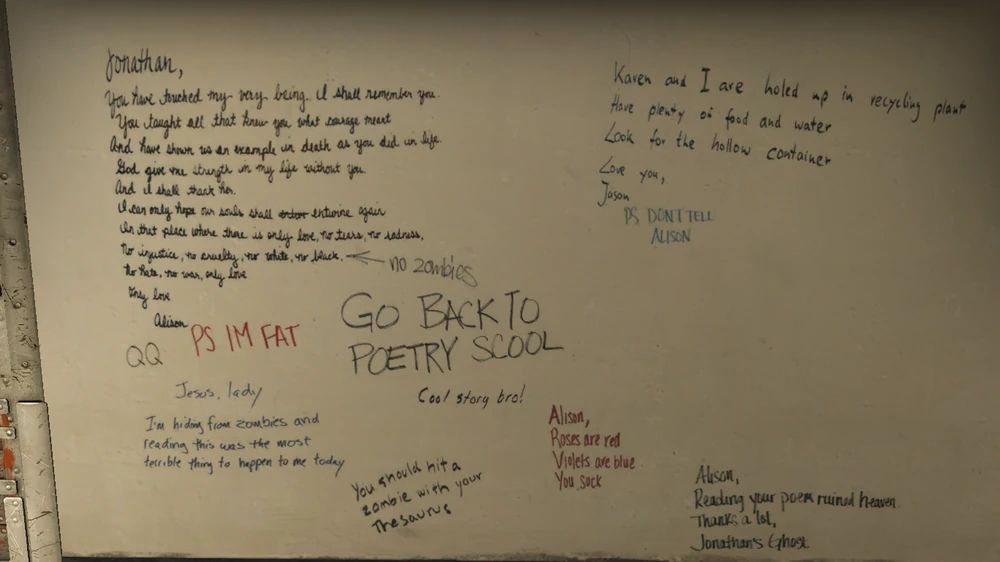 Jonathan,
You have touched my very being. I shall remember you.
You taught all that knew you what courage meant
And have shown us an example in death as you did in life.
God give me strength in my life without you.
And I shall thank her.
I can only hope our souls shall entwine again
In that place where there is only love, no tears, no sadness,
No injustice, no cruelty, no white, no black.
no zombies
No hate, no war, only love
Only love
Alison
PS IM FAT
QQ
GO BACK TO
POETRY SCOOL
Jesus, lady
I'm hiding from zombies and
reading this was the most
terrible thing to happen to me today
Cool story bro!
You should hit a
zombie with your
Thesaurus
Alison,
Roses are red
Violets are blue
You suck
Karen and I are holed up in recycling plant
Have plenty of food and water
Look for the hollow container
Love you,
Jason
PS DONT TELL
ALISON
Alison,
Reading your poem ruined heaven.
Thanks a lot,
Jonathan's Ghost